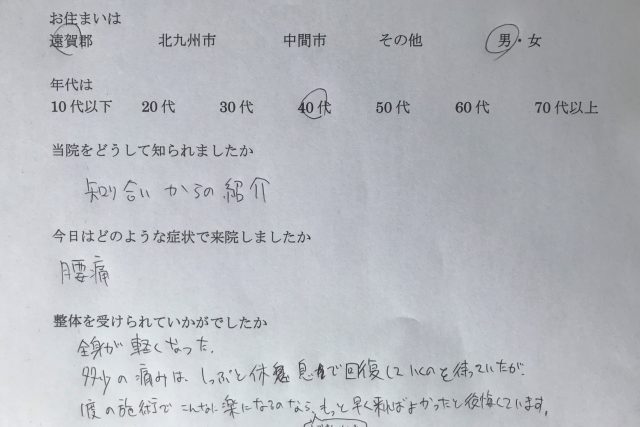 お住まいは
遠賀郡 北九州市 中間市 その他 男・女
年代は
10代以下 20代 30代 40代 50代 60代 70代以上
当院をどうして知られましたか
知り合いからの紹介
今日はどのような症状で来院しましたか
腰痛
整体を受けられていかがでしたか
全身が軽くなった。
多少の痛みは、しっぷと休息で回復していくのを待っていたが、
1度の施術でこんなに楽になるのなら、もっと早く来ればよかったと後悔しています。